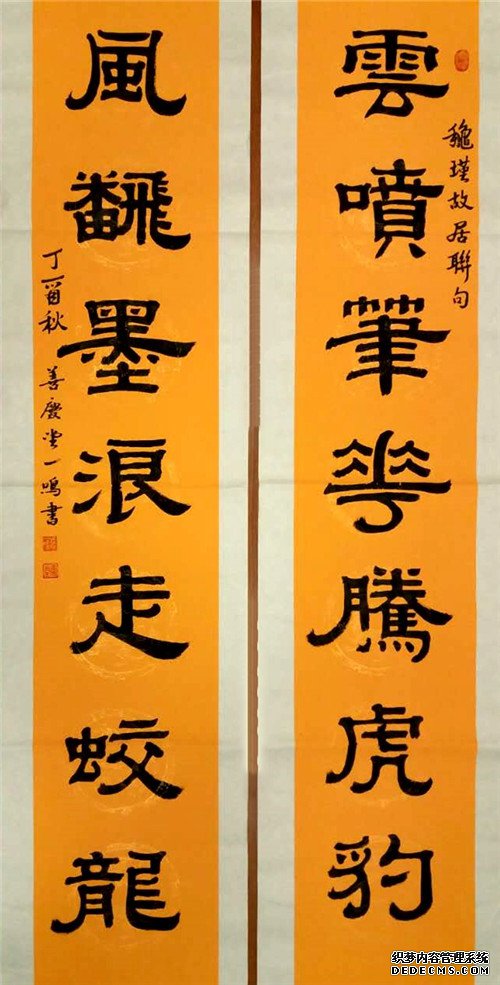 雲噴筆華騰虎豹
穐瑾故居聯句
風飜墨浪走蛟龍
丁酉秋 善慶堂一鳴书
织梦内容管理系统
DEDECMS.COM